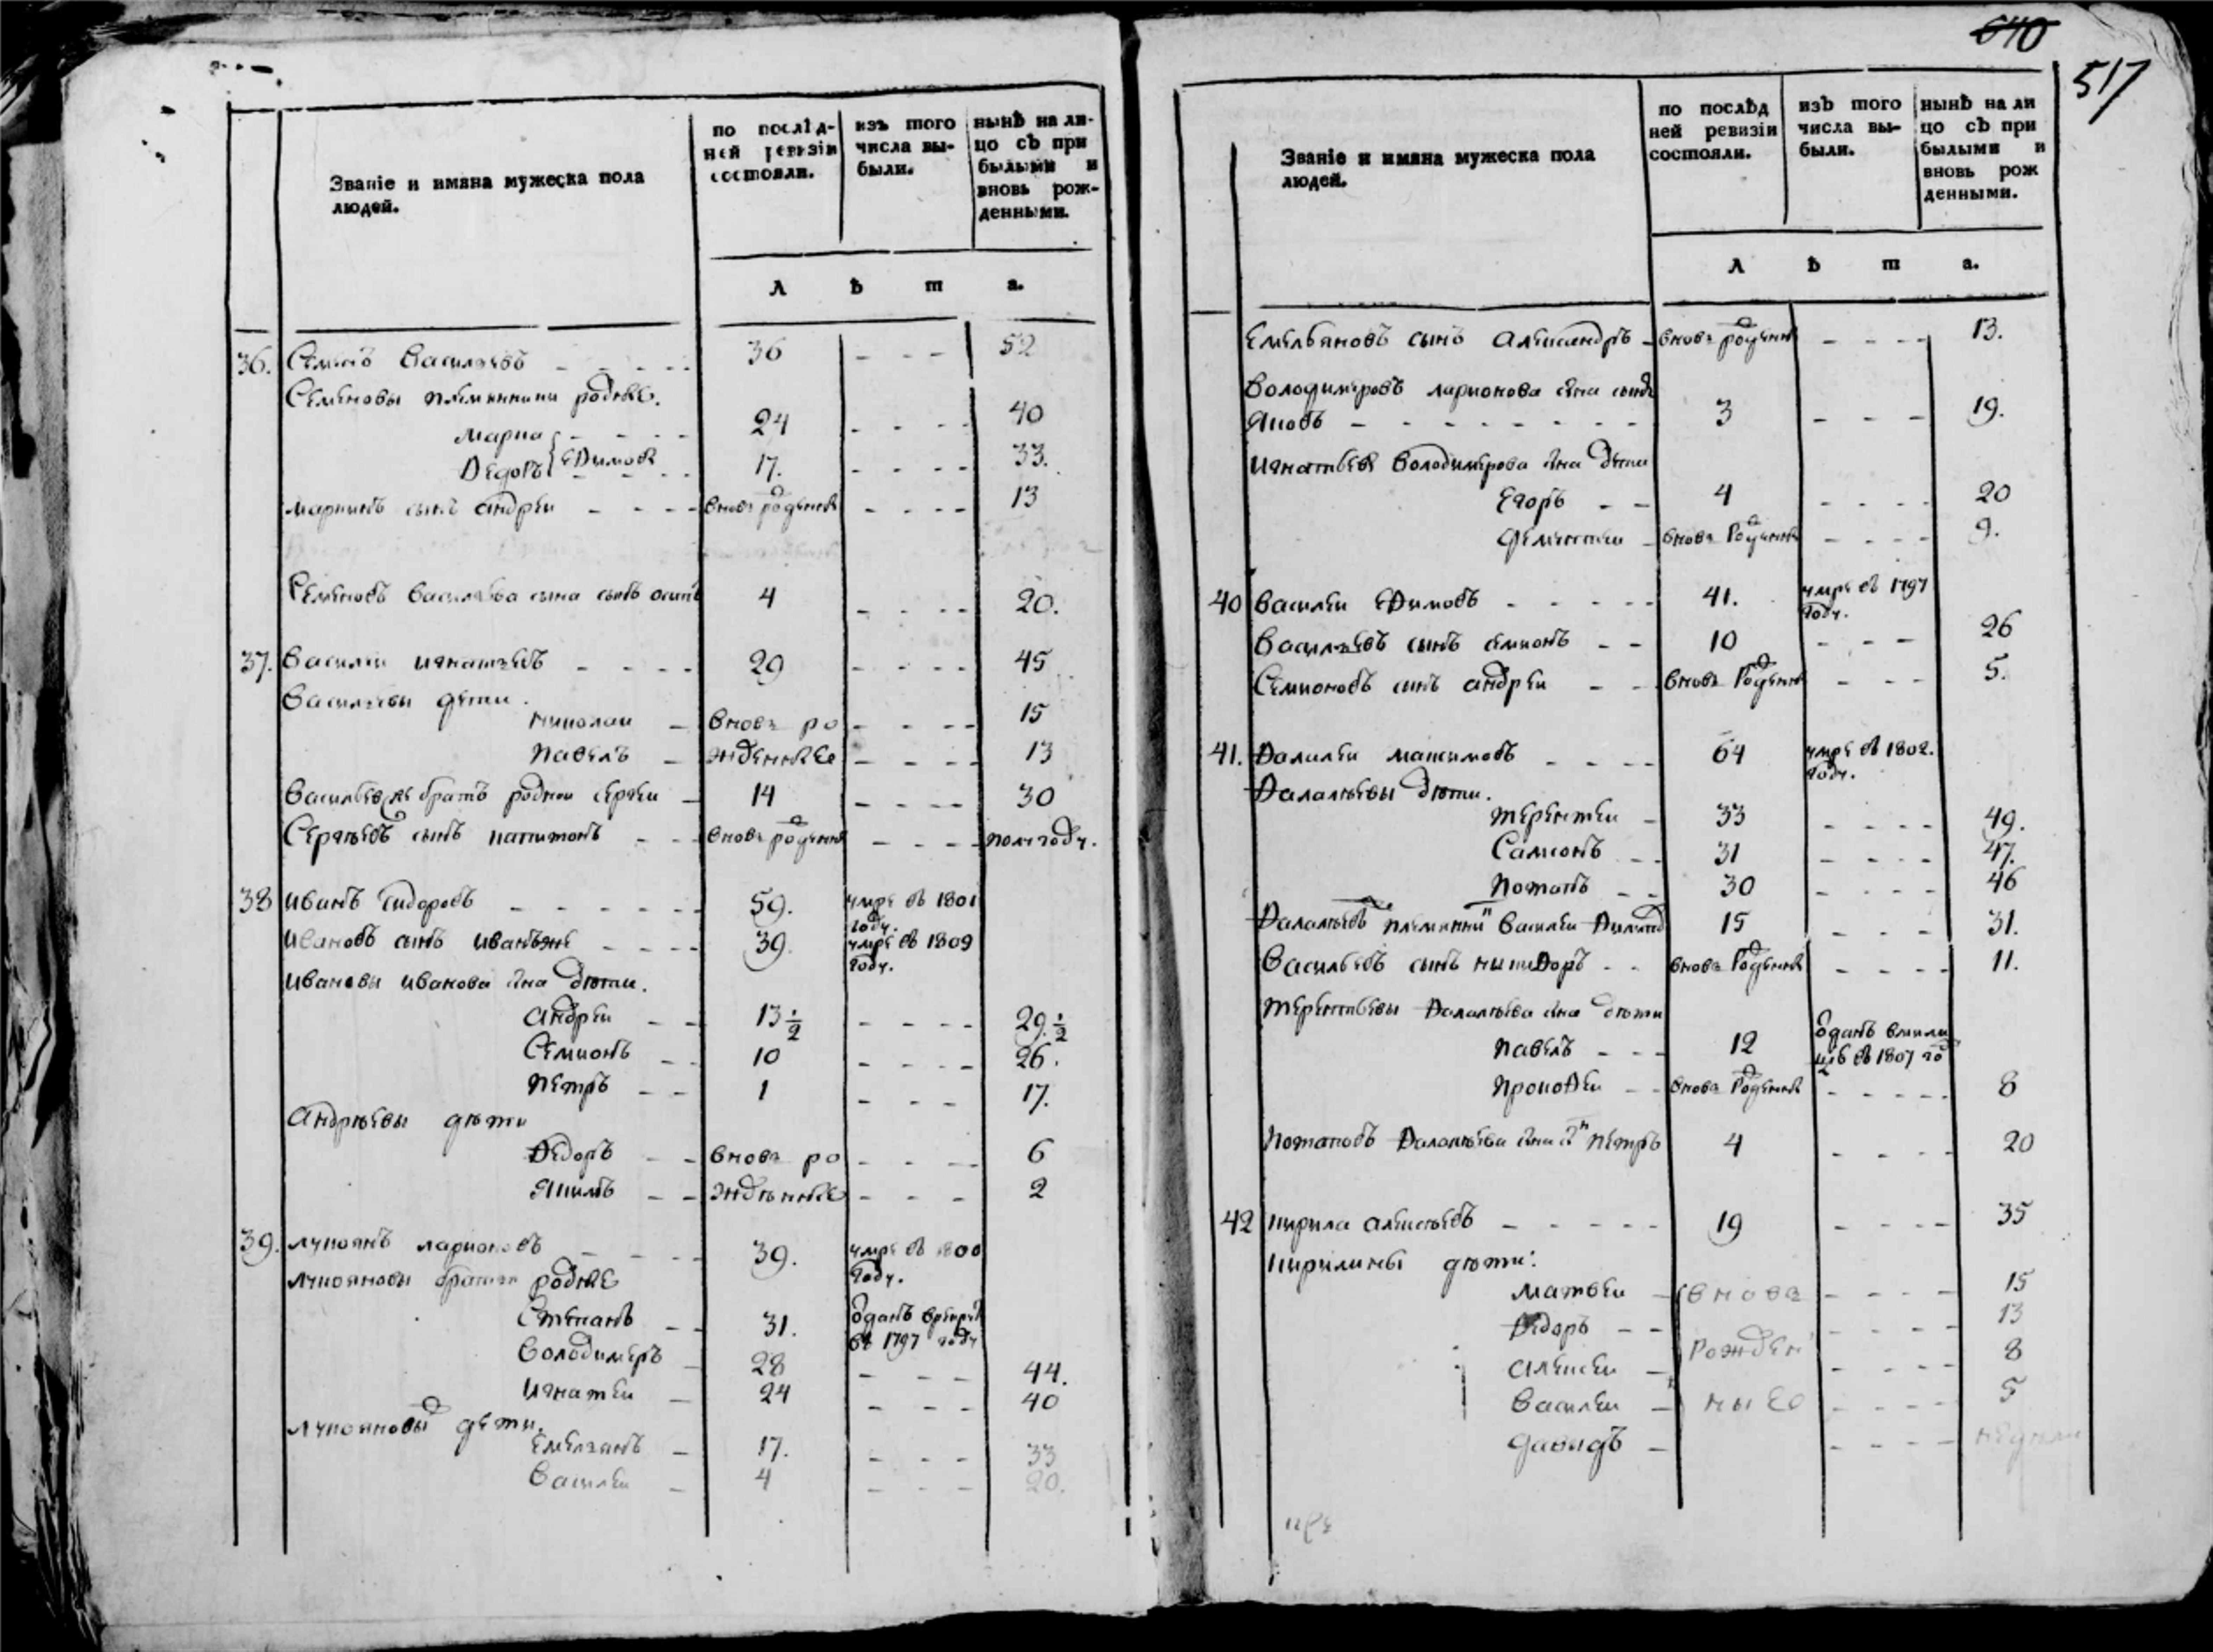 640
517
Званіе и имяна мужеска пола
людей.
по послѣд-
ней ревизіи
состояли.
изъ того
числа вы-
были.
нынѣ на ли-
цо съ при
былыми и
вновь рож-
денными.
Л ѣ т а.
36. Семенъ Васильевъ - - - - 36 - - - 52
Семеновы племянники родные.
Марка - - - 24 - - - - 40
Ѳедоръ Ефимовы - - - 17. - - - - 33.
Маркинъ сынъ андреи - - - - вновь рожденны - - - - 13
Семеновъ Васильева сына сынъ осипъ 4 - - - - 20.
37. Василеи игнатьевъ - - - - 29 - - - - 45
Васильевы дети.
николаи - вновь ро - - - - 15
Павелъ - жденные - - - - 13
Васильевъ братъ роднои сергеи - 14 - - - - 30
Сергѣевъ сынъ капитонъ - - - вновь рожденны - - - - полгоду.
38 иванъ Сидоровъ - - - - - - 59. умре въ 1801
году.
Ивановъ сынъ иванъже - - - - 39. умре въ 1809
году.
Ивановы иванова сна дѣти.
андреи - - 13 1/2 - - - - 29. 1/2
Семионъ - - 10 - - - - 26.
Петръ - - 1 - - - 17.
Андрѣевы дѣти
Ѳедоръ - - вновь ро - - - - 6
Якимъ - - жденные - - - 2
39. лукоянъ ларионовъ - - - - 39. умре въ 1800
году.
лукояновы братья родные
Степанъ - - 31. Отданъ врекруты
въ 1797 году
Володимеръ - 28 - - - 44.
Игнатеи - 24 - - - 40
лукояновы дети.
Емельянъ - 17. - - - 33
Василеи - 4 - - - 20.
Званіе и имяна мужеска пола
людей.
по послѣд
ней ревизіи
состояли.
изъ того
числа вы-
были.
нынѣ на ли
цо съ при
былыми и
вновь рож
денными.
Л ѣ т а.
Емельяновъ сынъ Александръ - вновь рожденны - - - - 13.
Володимеровъ ларионова сына сынъ
Яковъ - - - - - - - - 3 - - - 19.
Игнатьевы Володимерова сна дети
Егоръ - - 4 - - - - 20
Дементеи - вновь Рожденны - - - - 9.
40 Василеи Ефимовъ - - - - - 41. умре въ 1797
году.
Васильевъ сынъ семионъ - - 10 - - - 26
Семионовъ сынъ андреи - - вновь Рожденны - - - 5.
41. Фалалеи максимовъ - - - - 64 умре въ 1802.
году.
Фалалѣевы дѣти.
Терентеи - 33 - - - - 49.
Самсонъ - - 31 - - - - 47.
Потапъ - - 30 - - - - 46
Фалалѣевъ племянникъ Василеи 15 - - - 31.
Васильевъ сынъ никифоръ - - вновь Рожденны - - - - 11.
Терентьевы Фалалѣева сна дѣти
Павелъ - - - 12 Отданъ вмили
цыю въ 1807 го
Прокофеи - - вновь Рожденны - - - - - 8
Потаповъ Фалалѣева сна сынъ Петръ 4 - - - - 20
42 кирила алексѣевъ - - - - - 19 - - - - 35
кирилины дѣти:
Матвеи - вновь - - - - 15
Ѳедоръ - - - - - - 13
алексеи - Рожден - - - - 8
Василеи - ные - - - - 5
Давидъ - - - - - недели